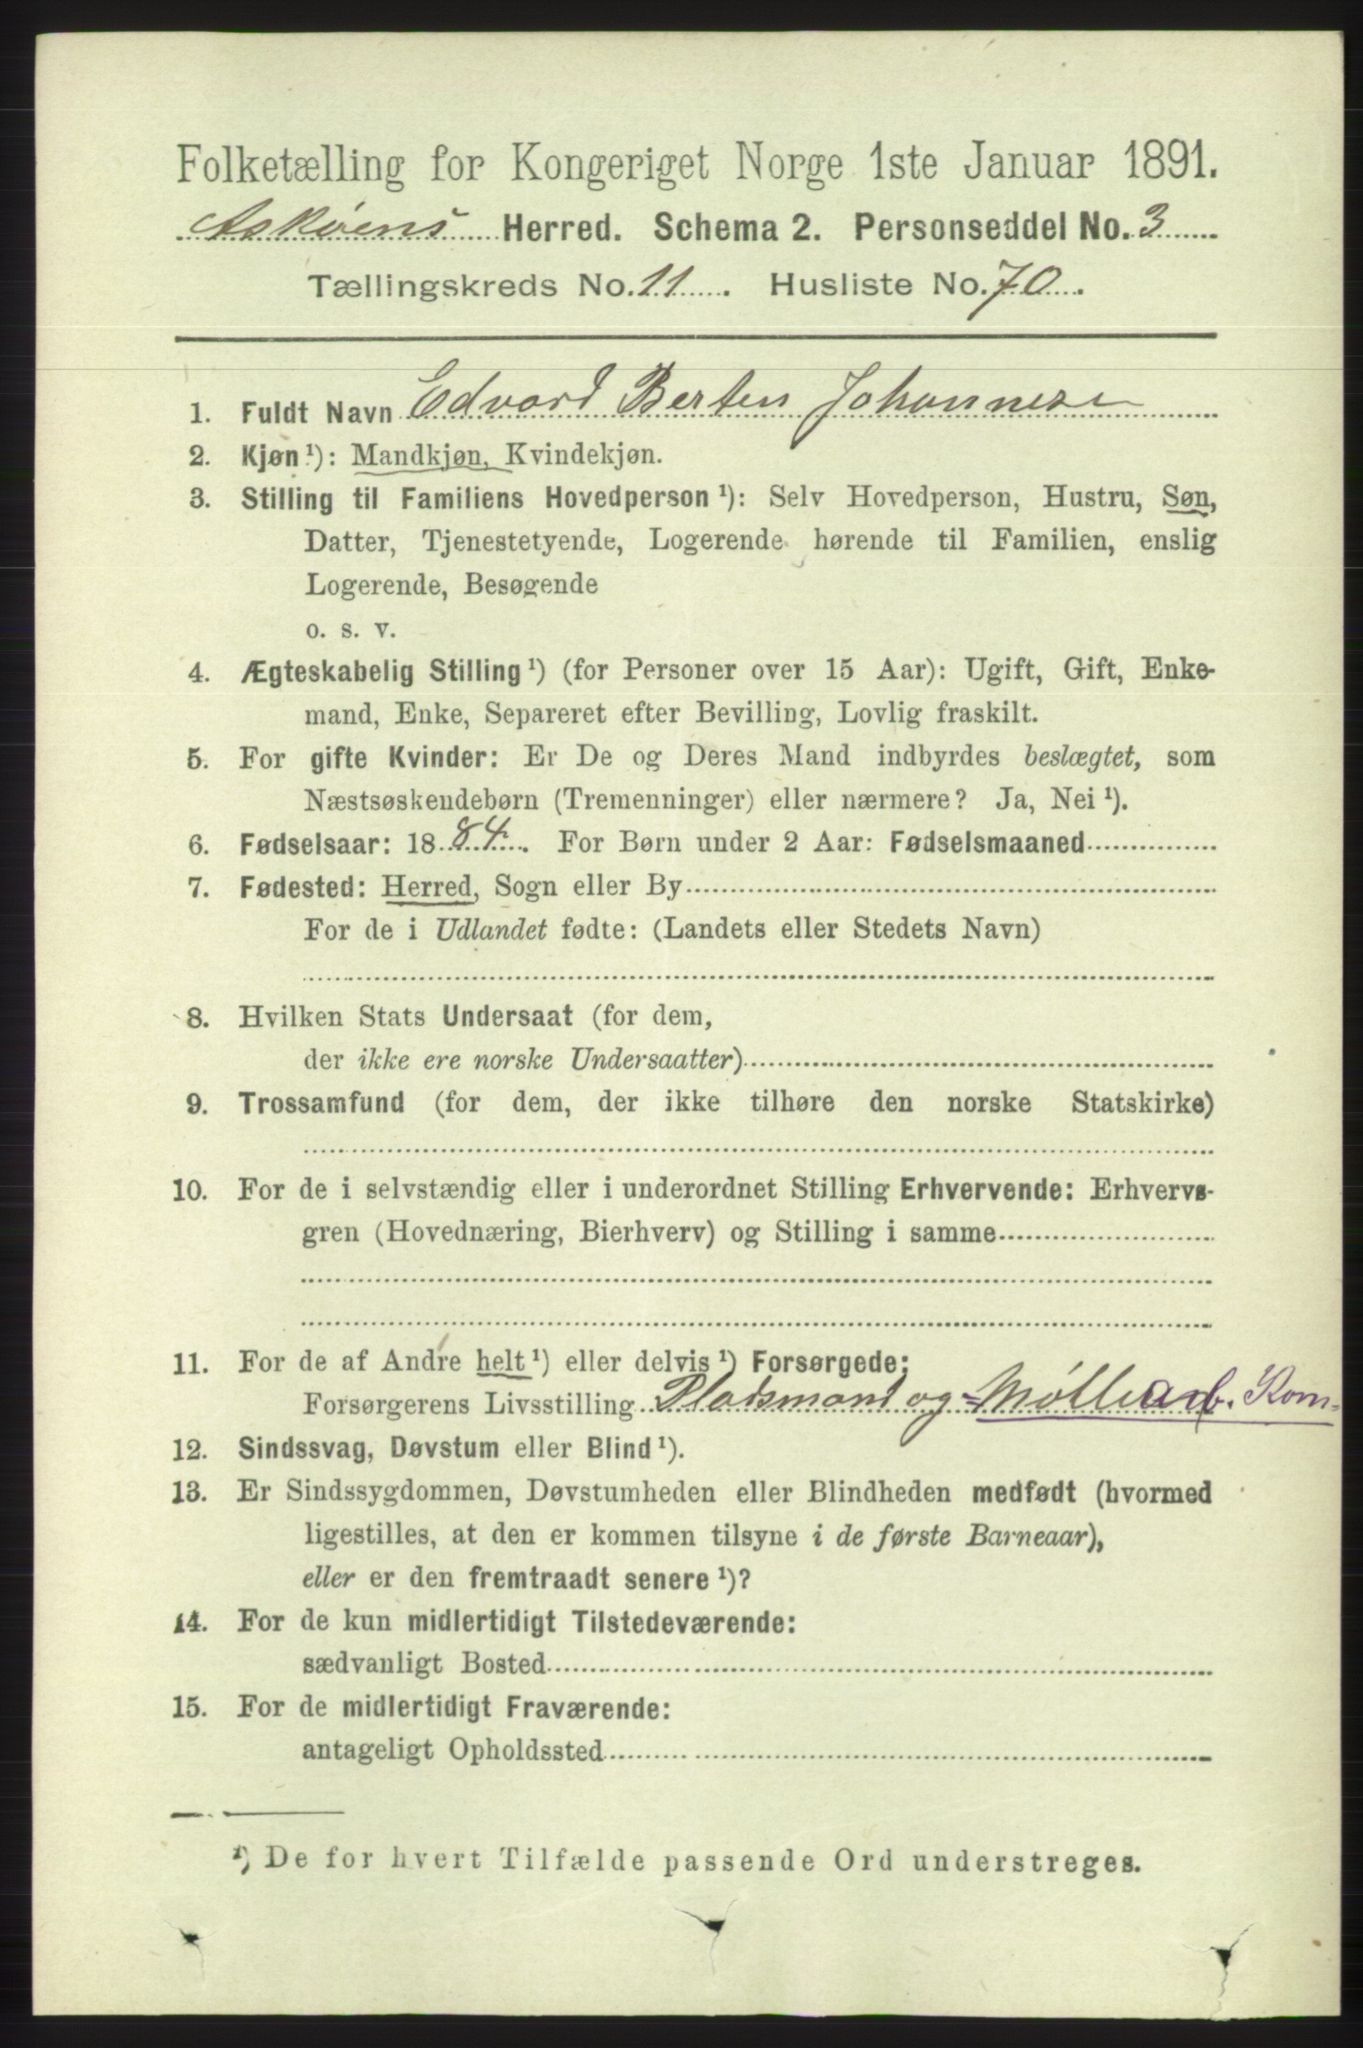 Folketælling for Kongeriget Norge 1ste Januar 1891.
Askøens Herred. Schema 2. Personseddel No. 3
Tællingskreds No. 11. Husliste No. 70.
1. Fuldt Navn Edvard Berten Johannese
2. Kjøn ¹): Mandkjøn, Kvindekjøn.
3. Stilling til Familiens Hovedperson ¹): Selv Hovedperson, Hustru, Søn,
Datter, Tjenestetyende, Logerende hørende til Familien, enslig
Logerende, Besøgende
o. s. v.
4. Ægteskabelig Stilling ¹) (for Personer over 15 Aar): Ugift, Gift, Enke-
mand, Enke, Separeret efter Bevilling, Lovlig fraskilt.
5. For gifte Kvinder: Er De og Deres Mand indbyrdes beslægtet, som
Næstsøskendebørn (Tremenninger) eller nærmere? Ja, Nei ¹).
6. Fødselsaar: 1884. For Børn under 2 Aar: Fødselsmaaned
7. Fødested: Herred, Sogn eller By
For de i Udlandet fødte: (Landets eller Stedets Navn)
8. Hvilken Stats Undersaat (for dem,
der ikke ere norske Undersaatter)
9. Trossamfund (for dem, der ikke tilhøre den norske Statskirke)
10. For de i selvstændig eller i underordnet Stilling Erhvervende: Erhvervs-
gren (Hovednæring, Bierhverv) og Stilling i samme
11. For de af Andre helt ¹) eller delvis ¹) Forsørgede:
Forsørgerens Livsstilling Pladsmand og Møllearb. Korn
12. Sindssvag, Døvstum eller Blind ¹).
13. Er Sindssygdommen, Døvstumheden eller Blindheden medfødt (hvormed
ligestilles, at den er kommen tilsyne i de første Barneaar),
eller er den fremtraadt senere ¹)?
14. For de kun midlertidigt Tilstedeværende:
sædvanligt Bosted
15. For de midlertidigt Fraværende:
antageligt Opholdssted
¹) De for hvert Tilfælde passende Ord understreges.